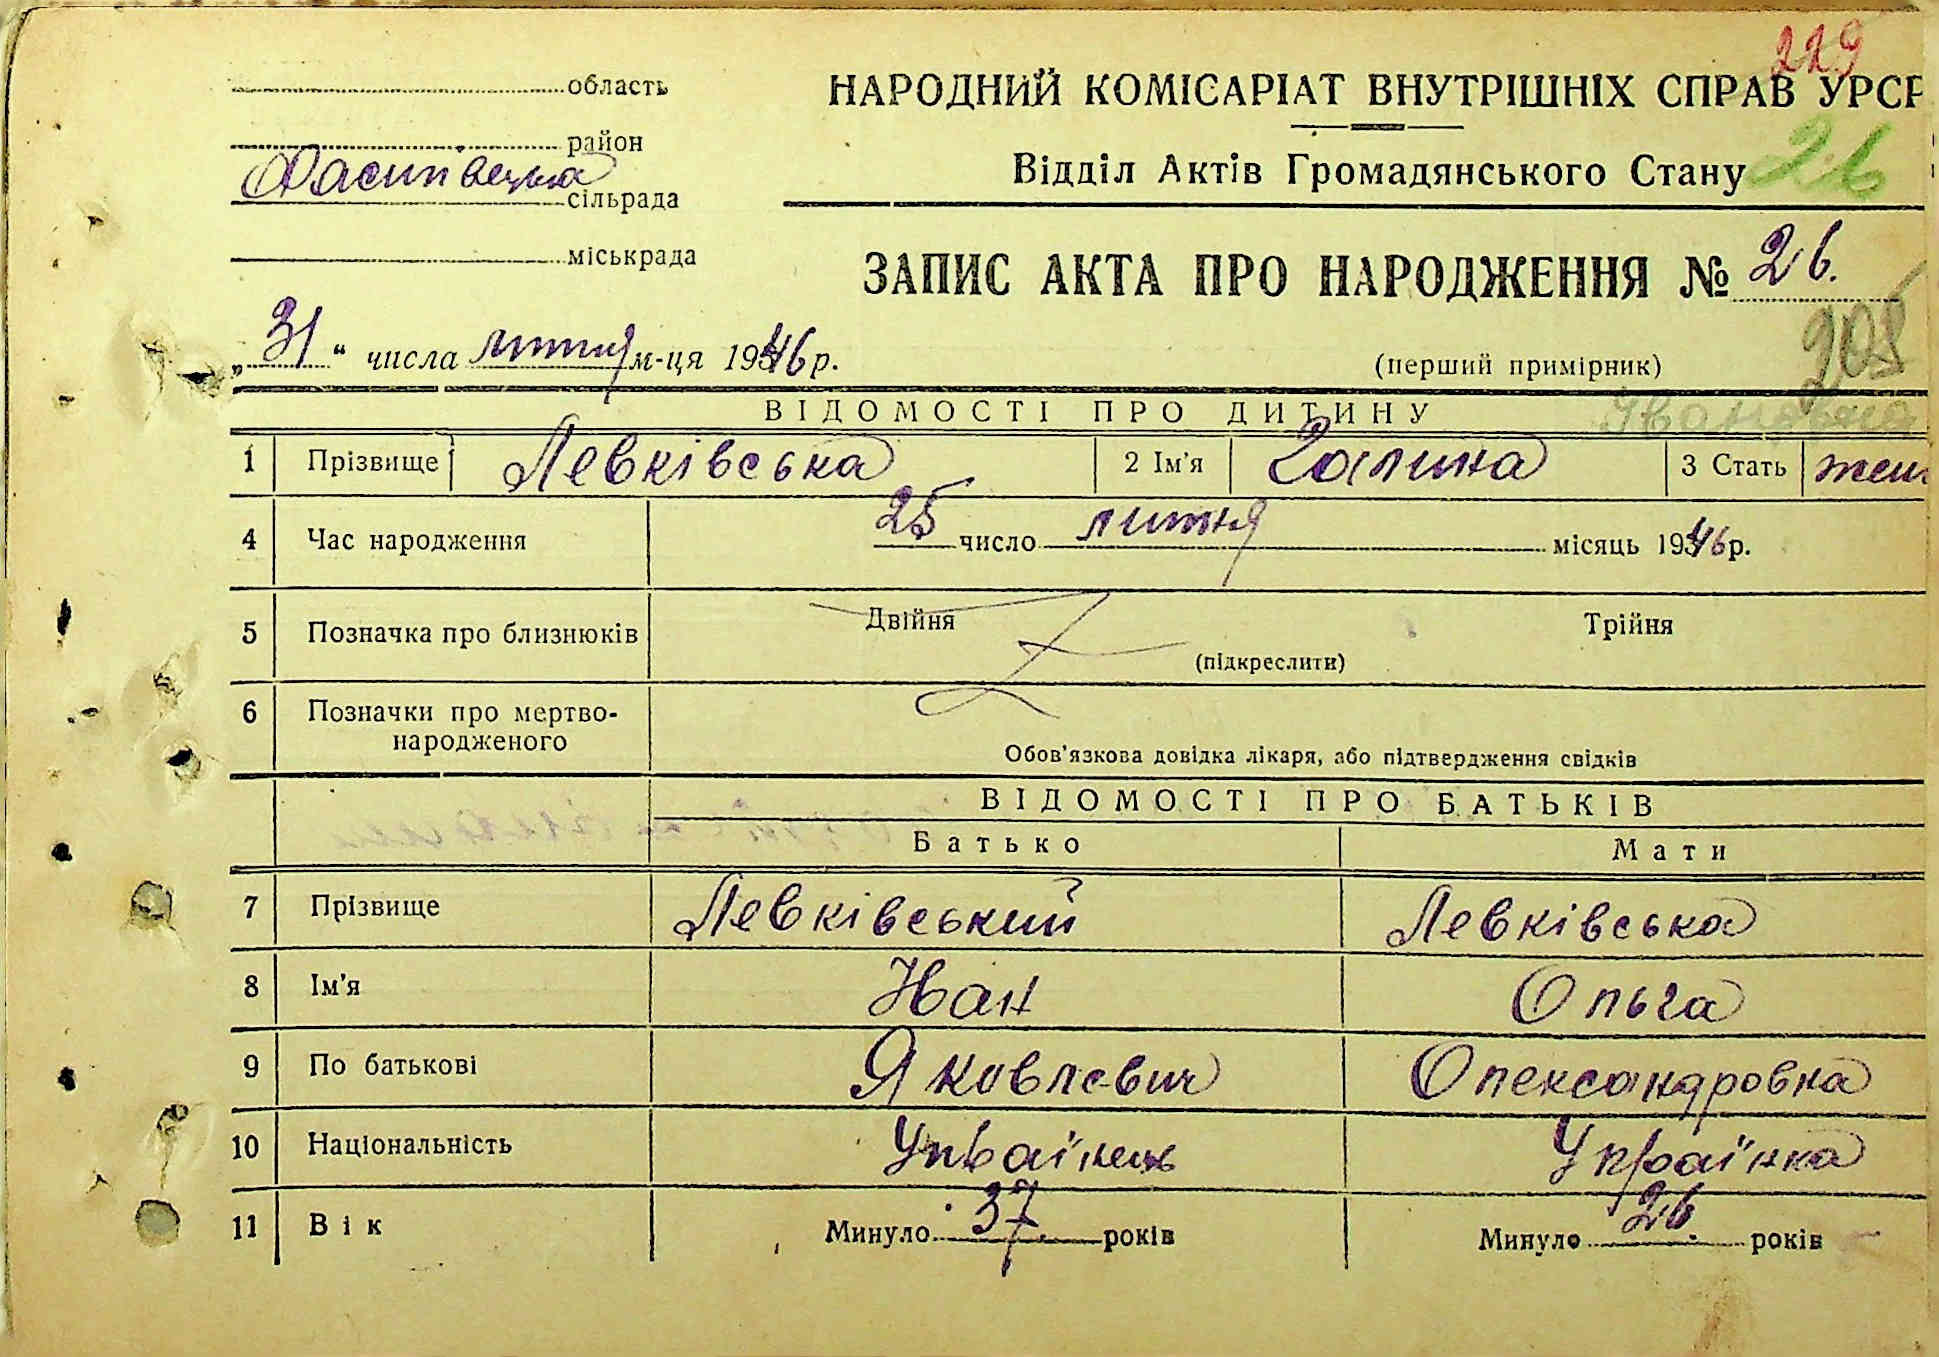 229
область
НАРОДНИЙ КОМІСАРІАТ ВНУТРІШНІХ СПРАВ УРСР
район
Відділ Актів Громадянського Стану 26
сільрада
міськрада
ЗАПИС АКТА ПРО НАРОДЖЕННЯ № 26.
„31“ числа лютня м-ця 1946 р.
(перший примірник)
205
ВІДОМОСТІ ПРО ДИТИНУ Івановна
1 Прізвище Левківська 2 Ім'я Галина 3 Стать жен
4 Час народження 25 число лютня місяць 1946 р.
5 Позначка про близнюків Двійня Трійня
(підкреслити)
6 Позначки про мертво-
народженого
Обов'язкова довідка лікаря, або підтвердження свідків
ВІДОМОСТІ ПРО БАТЬКІВ
Батько Мати
7 Прізвище Левківський Левківська
8 Ім'я Иван Ольга
9 По батькові Яковлевич Олександровна
10 Національність Українець Українка
11 Вік Минуло 37 років Минуло 26 років